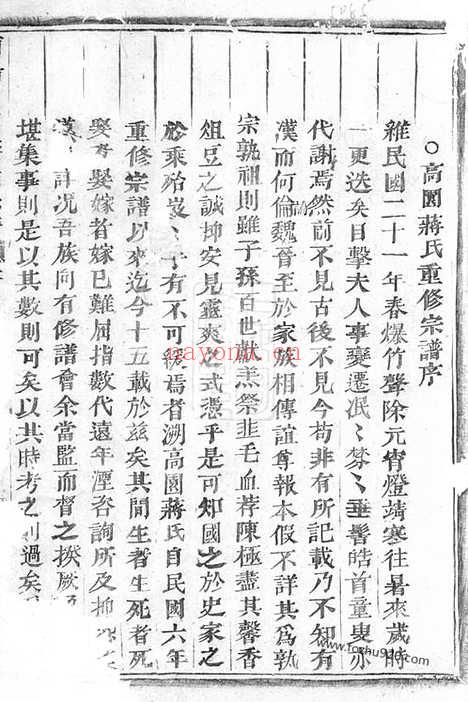 ○高園蔣氏重修宗譜序
維民國二十一年春爆竹聲除元宵燈靖寒往暑來歲時
一更迭矣目擊夫人事變遷泯〻棼〻垂髫皓首童叟亦
代謝焉然前不見古後不見今苟非有所記載乃不知有
漢而何倫魏晉至於家族相傳誼尊報本假不詳其為孰
宗孰祖則雖子孫百世獻羔祭韭毛血荐陳極盡其馨香
俎豆之誠抑安見靈爽之式憑乎是可知國之於史家之
於乘殆岌〻乎有不可後焉者溯高園蔣氏自民國六年
重修宗譜以來迄今十五載於茲矣其間生者生死者死
娶者娶嫁者嫁已難屈指數代遠年湮咨詢所及抑
漢 許況吾族向有修譜會余當監而督之揆厥
堪集事則是以其數則可矣以其時考之則過矣
nayona.cn
www.Tozhu920.com